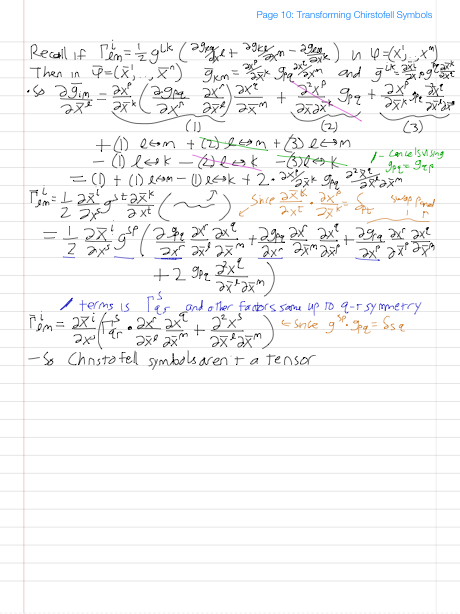 Page 10: Transforming Chirstofell Symbols
Recall if Γ^i_{lm} = 1/2 g^{ik} (∂g_{mk}/∂x^l + ∂g_{kl}/∂x^m - ∂g_{lm}/∂x^k) in φ=(x^1, ..., x^n)
Then in φ̄=(x̄^1, ..., x̄^n) g_{km} = ∂x^p/∂x̄^k g_{pq} ∂x^q/∂x̄^m and
• So ∂g_{km}/∂x̄^l = ∂x^p/∂x̄^k (∂g_{pq}/∂x^r ∂x^r/∂x̄^l) ∂x^q/∂x̄^m + ∂²x^p/∂x̄^l∂x̄^k g_{pq} + ∂x^p/∂x̄^k g_{pq} ∂²x^q/∂x̄^l∂x̄^m
(1) (2) (3)
+ (1) l↔m + (2) l↔m + (3) l↔m
- (1) l↔k - (2) l↔k - (3) l↔k
/ - cancels using g_{pq} = g_{qp}
= (1) + (1) l↔m - (1) l↔k + 2 · ∂x^p/∂x̄^k g_{pq} ∂²x^q/∂x̄^l∂x̄^m
Γ̄^i_{lm} = 1/2 ∂x̄^i/∂x^s g^{st} ∂x̄^k/∂x^t ( ) Since ∂x̄^k/∂x^t · ∂x^p/∂x̄^k = δ_{pt} swap p and r
= 1/2 ∂x̄^i/∂x^s g^{sp} (∂g_{pq}/∂x^r ∂x^r/∂x̄^l ∂x^q/∂x̄^m + ∂g_{pq}/∂x^r ∂x^r/∂x̄^m ∂x^q/∂x̄^l + ∂g_{rq}/∂x^p ∂x^r/∂x̄^l ∂x^q/∂x̄^m
+ 2 g_{pq} ∂²x^q/∂x̄^l∂x̄^m)
/ terms is Γ^s_{qr} and other factors same up to q-r symmetry
Γ̄^i_{lm} = ∂x̄^i/∂x^s (Γ^s_{qr} · ∂x^r/∂x̄^l ∂x^q/∂x̄^m + ∂²x^s/∂x̄^l∂x̄^m) ← Since g^{sp} · g_{pq} = δ_{sq}
- So Christofell symbols aren't a tensor